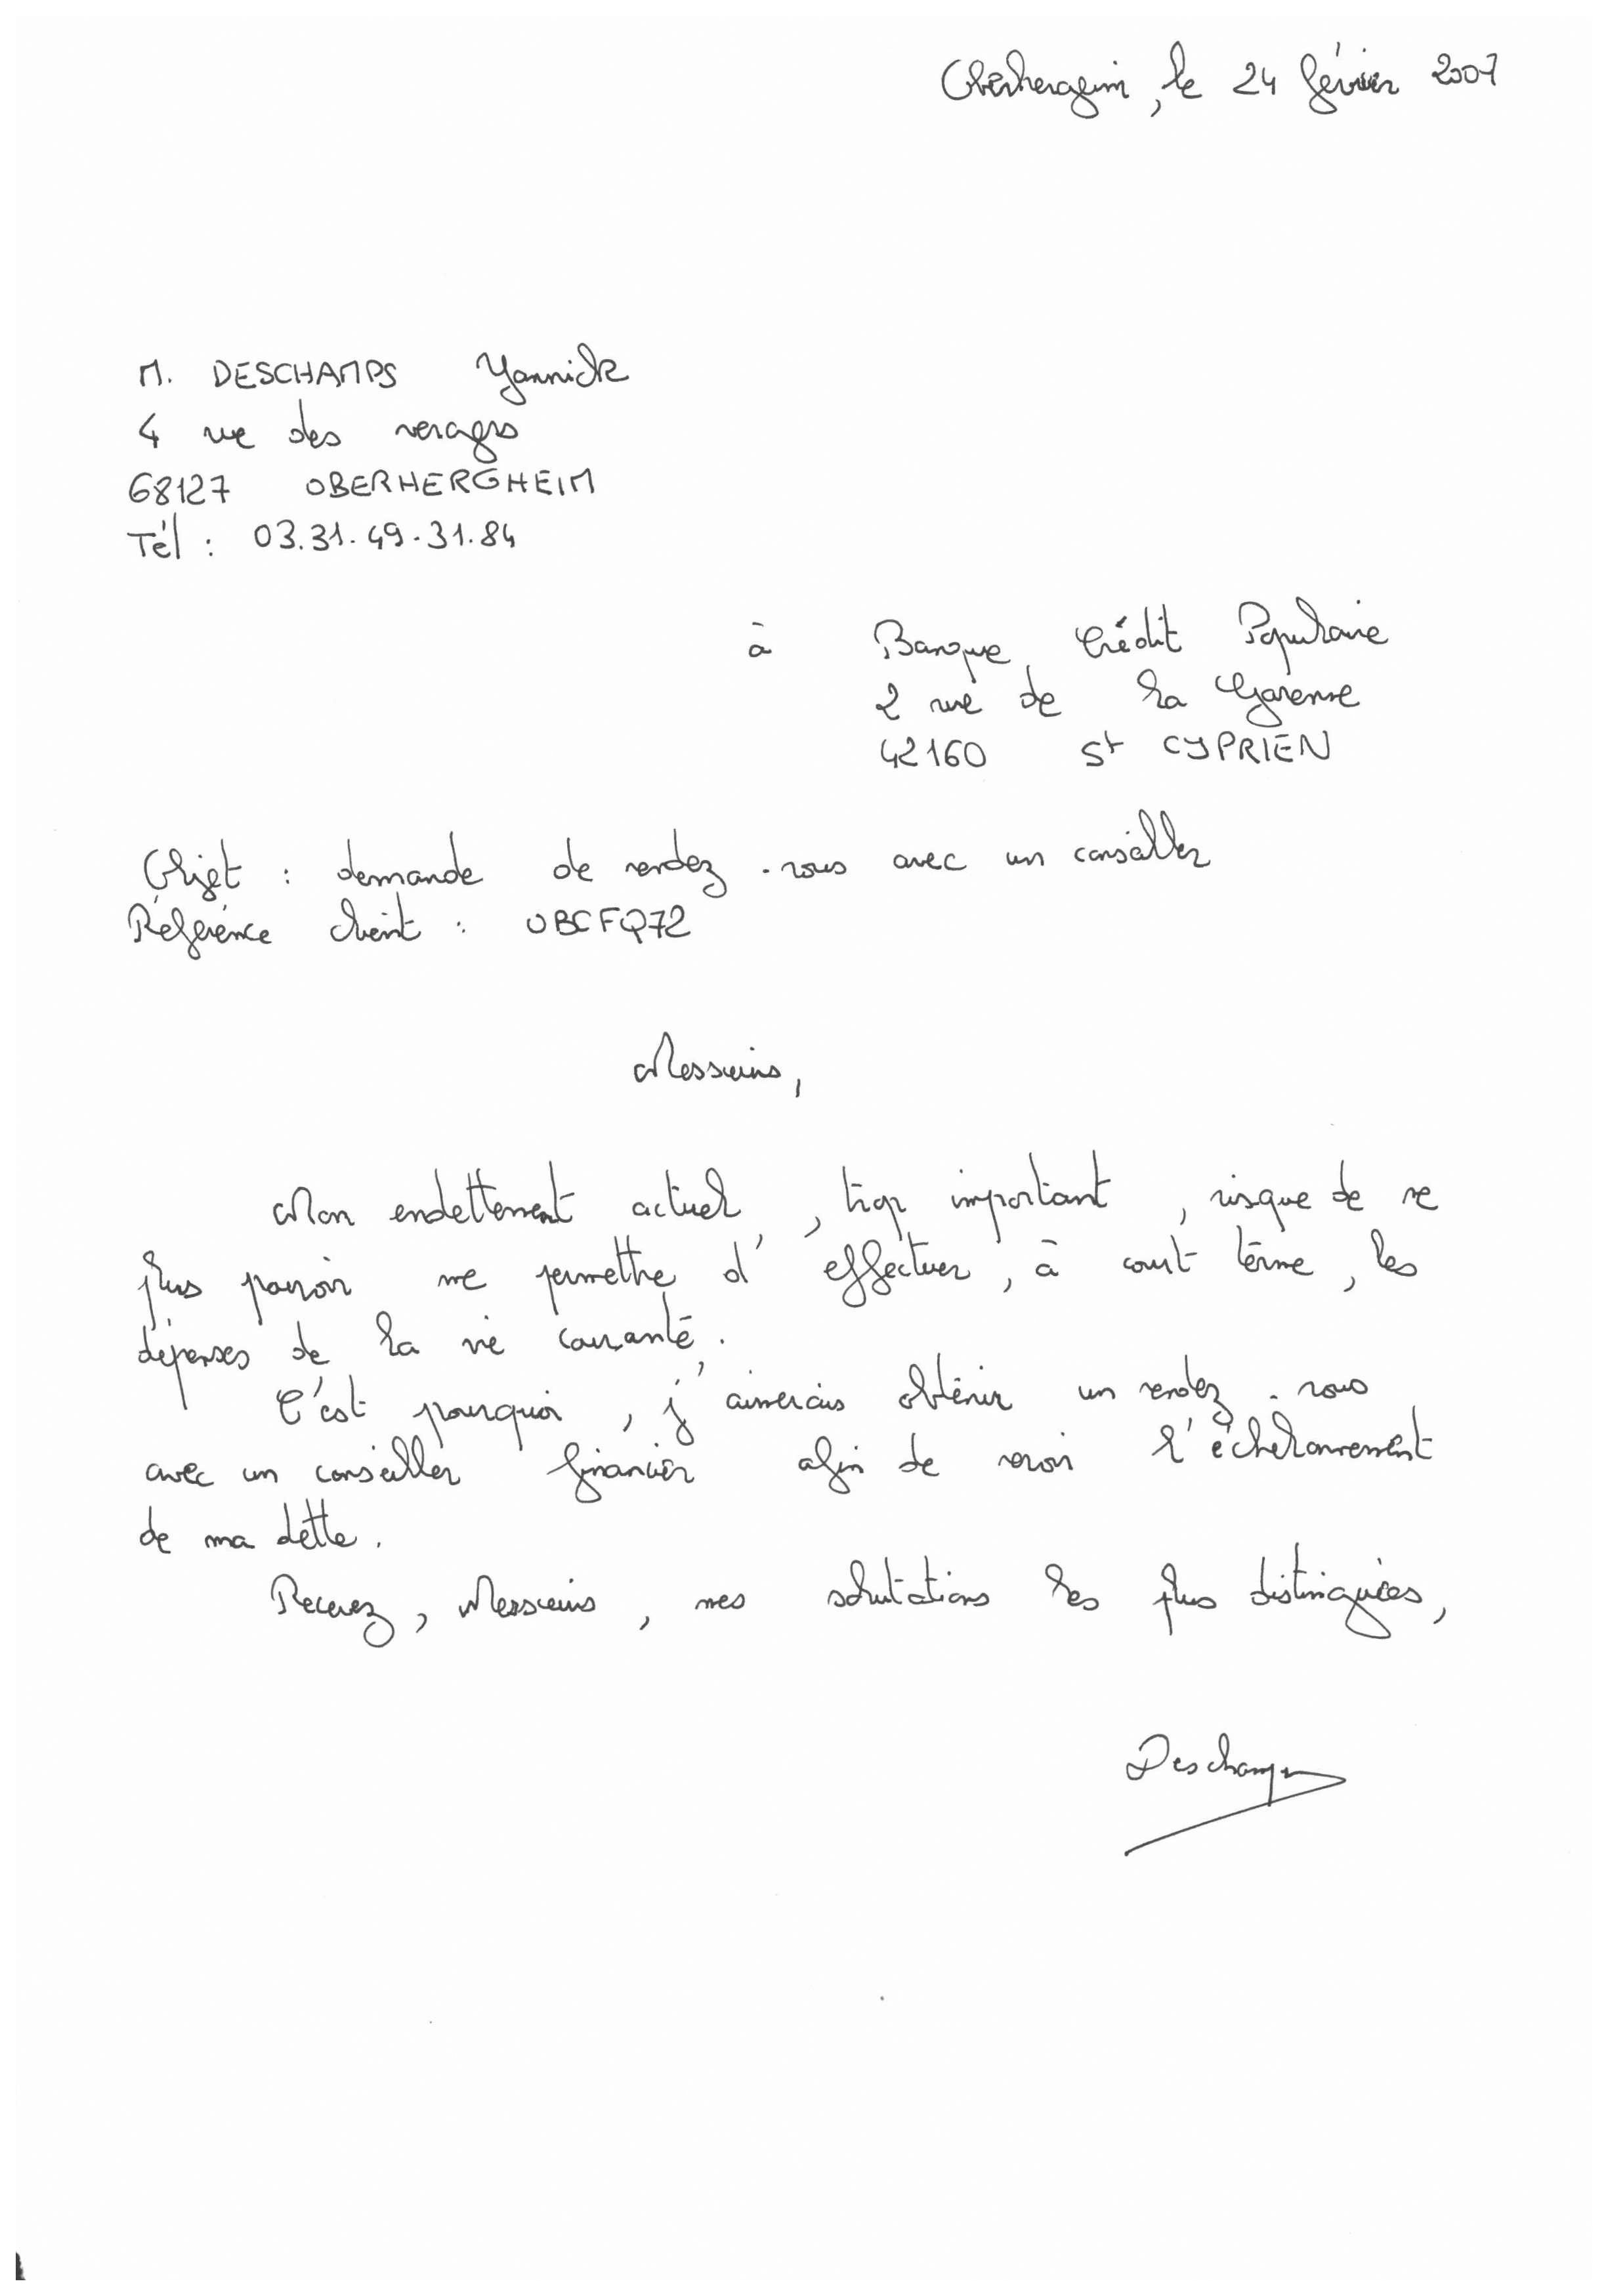 Oberhergeim, le 24 février 2007
M. DESCHAMPS Yannick
4 rue des vergers
68127 OBERHERGHEIM
Tél : 03.31.49.31.84
à Banque Crédit Populaire
2 rue de la Garenne
42160 St CYPRIEN
Objet : demande de rendez-vous avec un conseiller
Référence client : OBCFQ72
Messieurs,
Mon endettement actuel, trop important, risque de ne
plus pouvoir me permettre d'effectuer, à court terme, les
dépenses de la vie courante.
C'est pourquoi, j'aimerais obtenir un rendez-vous
avec un conseiller financier afin de revoir l'échelonnement
de ma dette.
Recevez, Messieurs, mes salutations les plus distinguées,
Deschamps